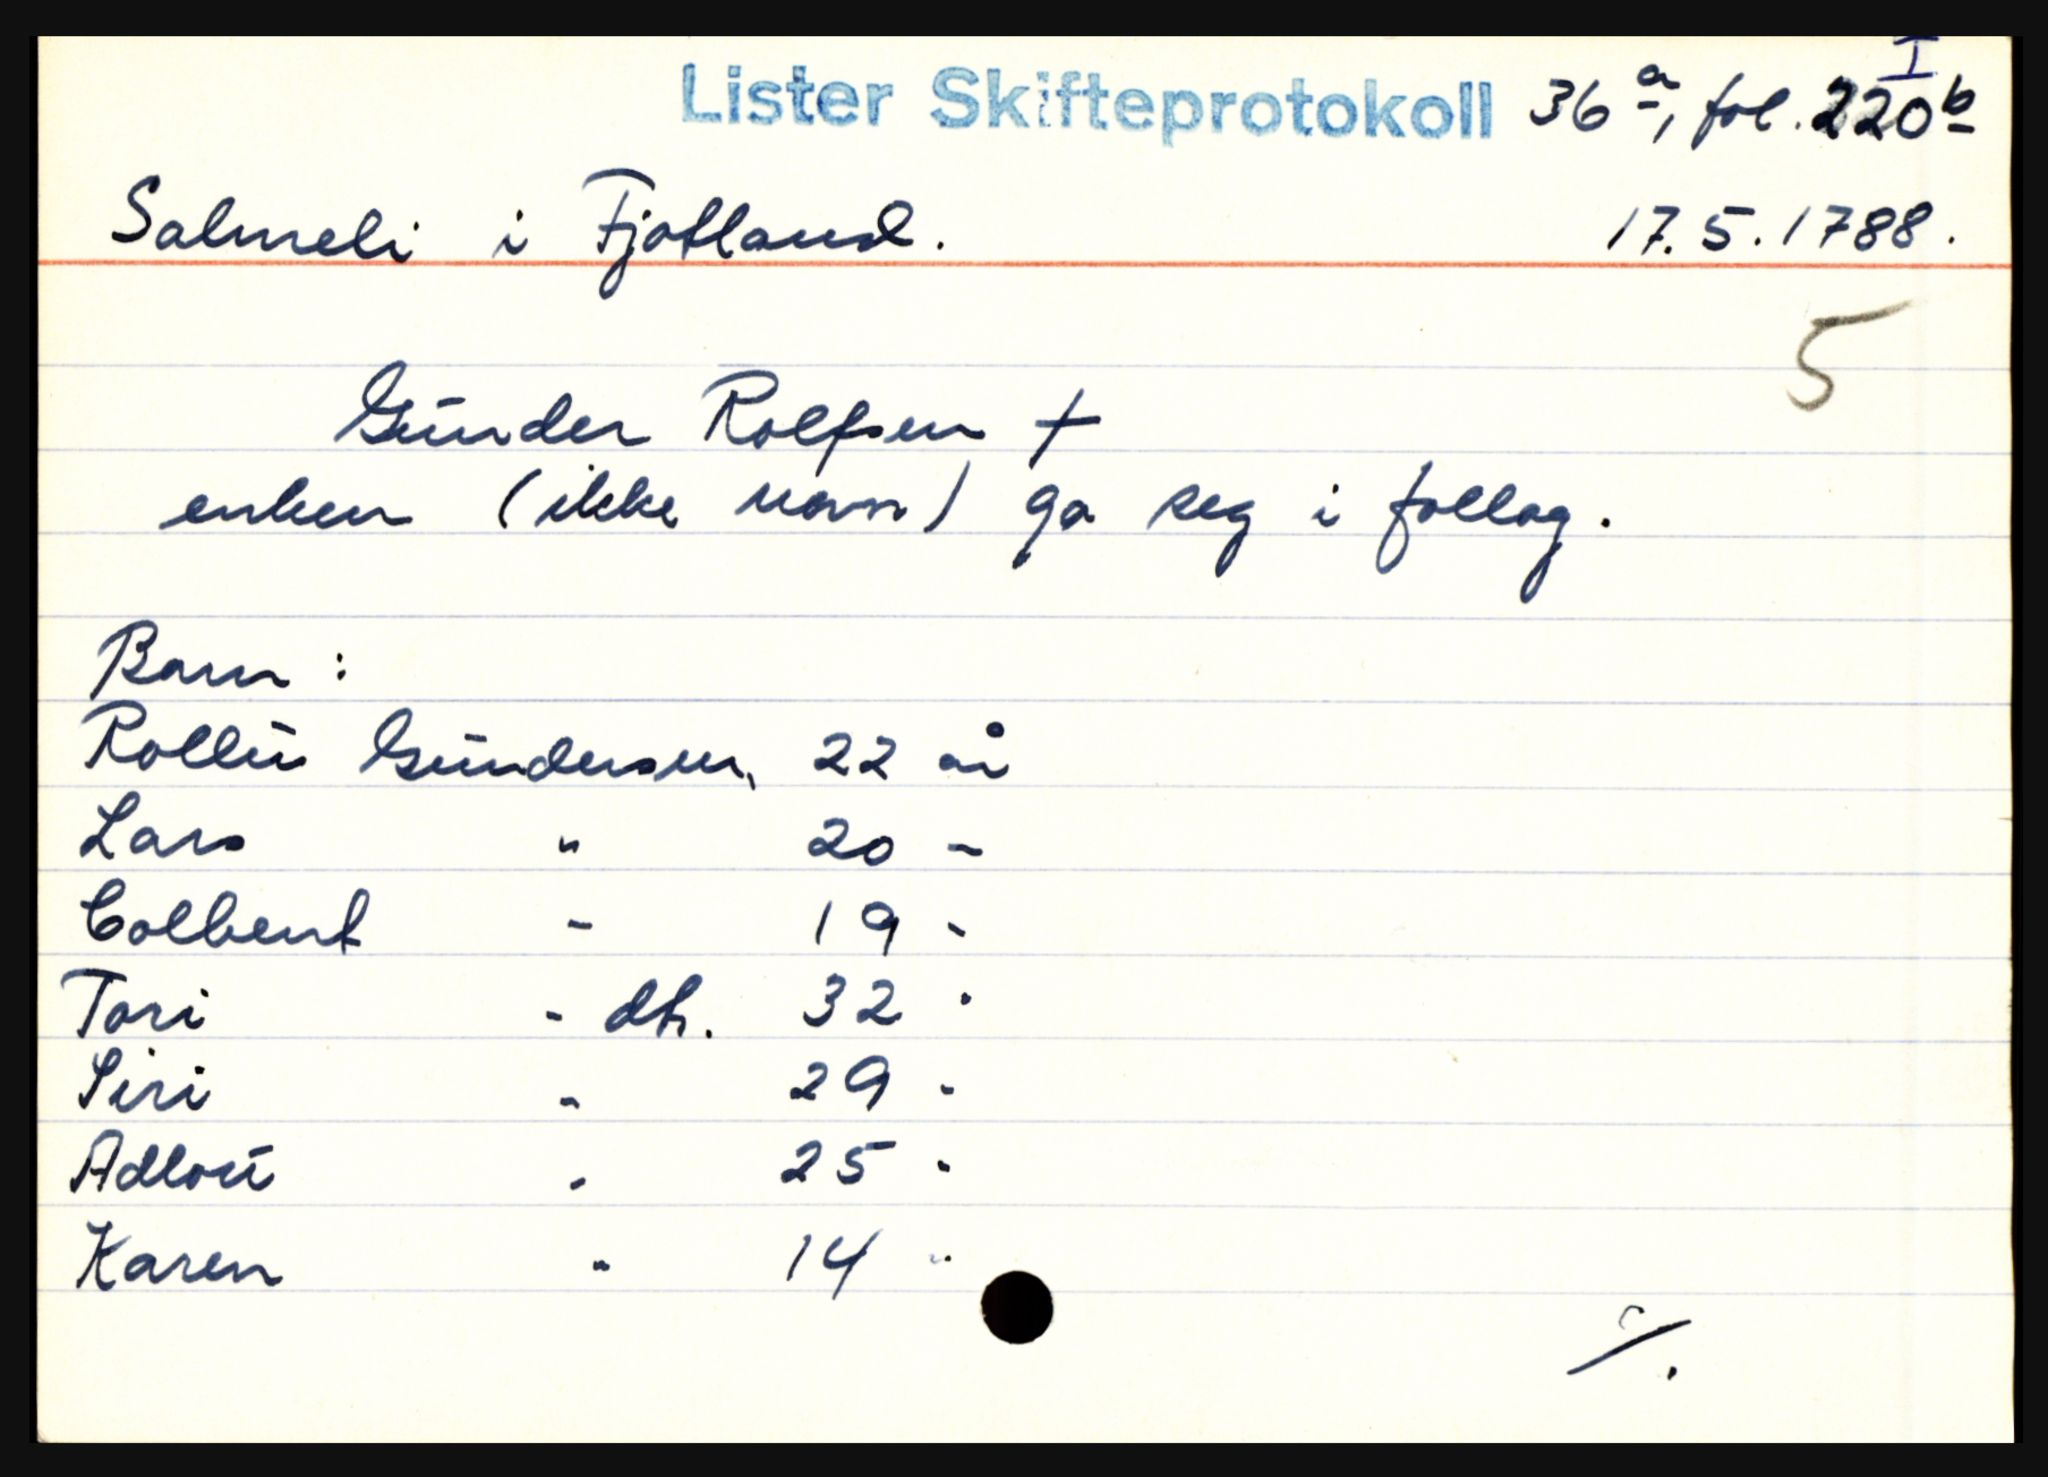 I
Lister Skifteprotokoll 36 a, fol. 220 b
Salmeli i Fjotland. 17.5.1788.
5
Gunder Rolfsen †
enken (ikke navn) ga seg i follag.
Barn :
Rolleiv Gundersen, 22 år
Lars " 20 -
Colbent - 19 -
Tori - dtr. 32 "
Siri " 29 -
Adlou " 25 "
Karen " 14 "
./.